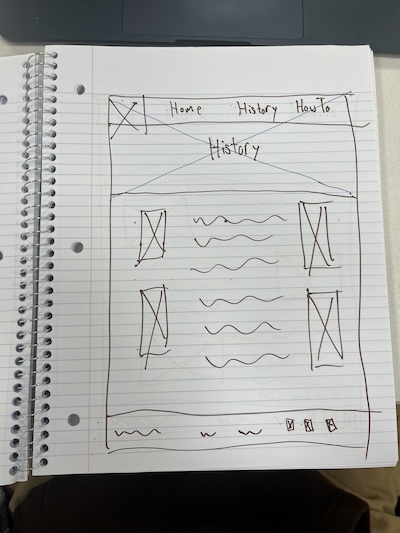 Home History HowTo
History